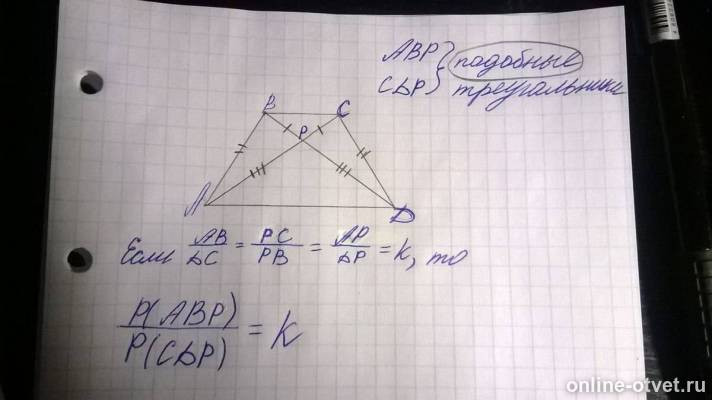 ABP } подобные
CDP } треугольники
B C
P
A D
Если AB/DC = PC/PB = AP/DP = k, то
P(ABP)/P(CDP) = k
online-otvet.ru